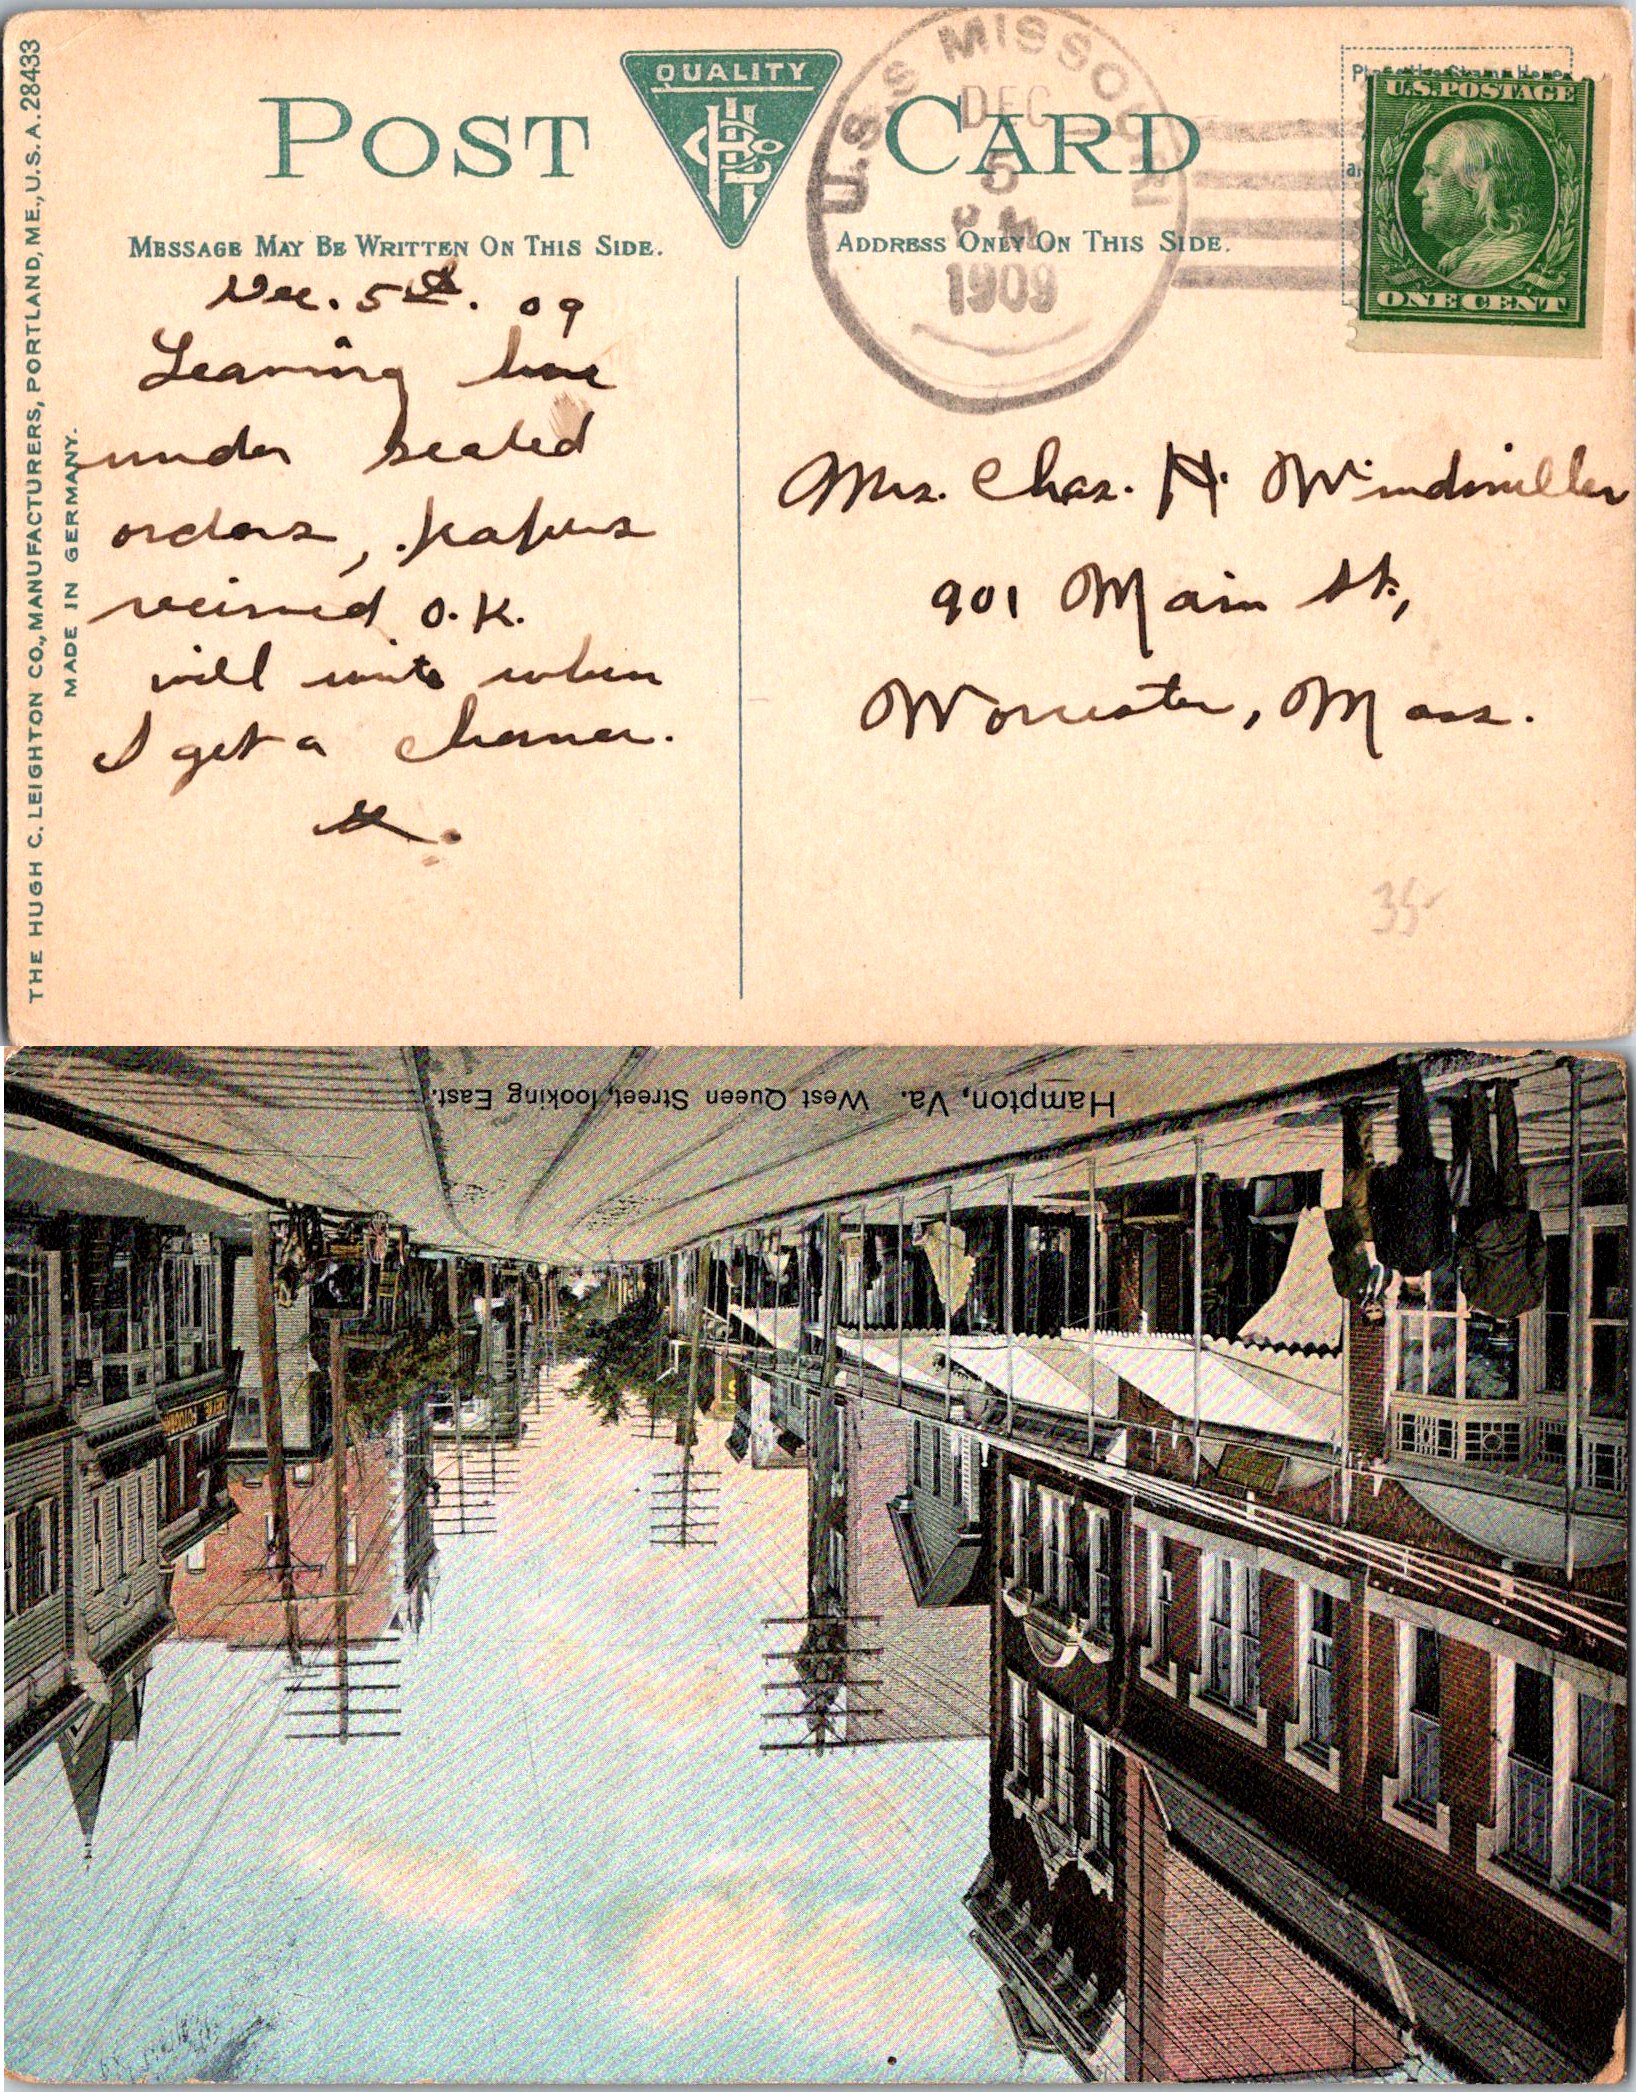 QUALITY
POST CARD
MESSAGE MAY BE WRITTEN ON THIS SIDE.
ADDRESS ONLY ON THIS SIDE.
THE HUGH C. LEIGHTON CO., MANUFACTURERS, PORTLAND, ME., U.S.A. 28433
MADE IN GERMANY.
U.S.S. MISSOURI
DEC
5
1909
U.S. POSTAGE
ONE CENT
Dec. 5th. 09
Leaving here
under sealed
orders, papers
received O.K.
will write when
I get a chance.
Mrs. Chas. H. Windmiller
901 Main St.,
Worcester, Mass.
35-
Hampton, Va. West Queen Street, looking East.